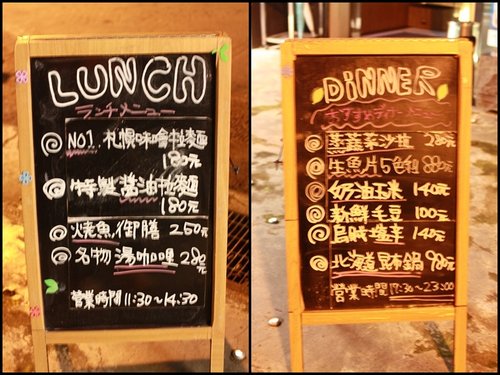 LUNCH
ランチメニュー
NO1. 札幌味噌拉麵
180元
特製醬油拉麵
180元
烧魚御膳 250元
名物湯咖哩 280元
營業時間 11:30~14:30
DINNER
蒸蔬菜沙拉 280元
生魚片5色 880元
奶油玉米 140元
新鮮毛豆 100元
140元
北海道昆布鍋 980元
營業時間 17:30~23:00